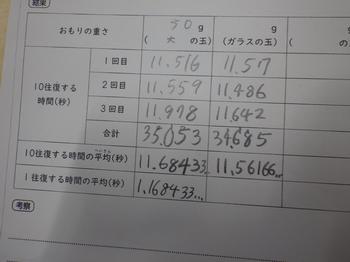 結果
おもりの重さ 50 g g g
(木の玉) (ガラスの玉) (
10往復する時間(秒)
1回目 11.516 11.57
2回目 11.559 11.486
3回目 11.978 11.642
合計 35.053 34.685
10往復する時間の平均(秒) 11.68433… 11.56166…
1往復する時間の平均(秒) 1.168433…
考察